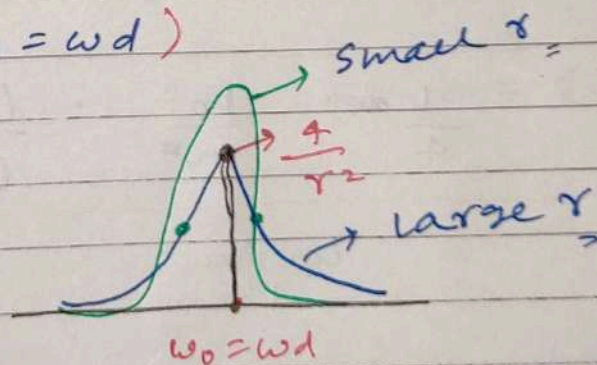 = ωd )
small r
4
r²
large r
ω₀ = ωd